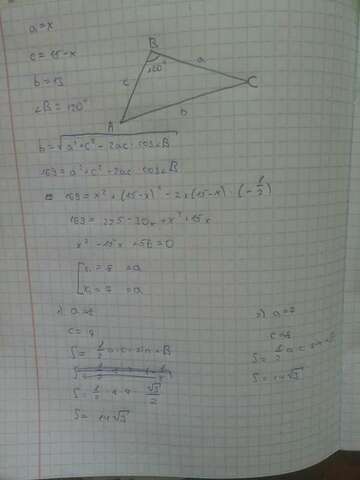 a=x
c=15-x
b=13
∠B=120°
B
120°
a
c
C
b
A
b=√a²+c²-2ac·cos∠B
169=a²+c²-2ac·cos∠B
169=x²+(15-x)²-2x(15-x)·(-1/2)
169=225-30x+x²+15x
x²-15x+56=0
[x₁=8=a
[x₂=7=a
1) a=8
c=7
S=1/2 a·c·sin∠B
S=1/2·8·7·√3/2
S=14√3
2) a=7
c=8
S=1/2 a·c
S=14√3